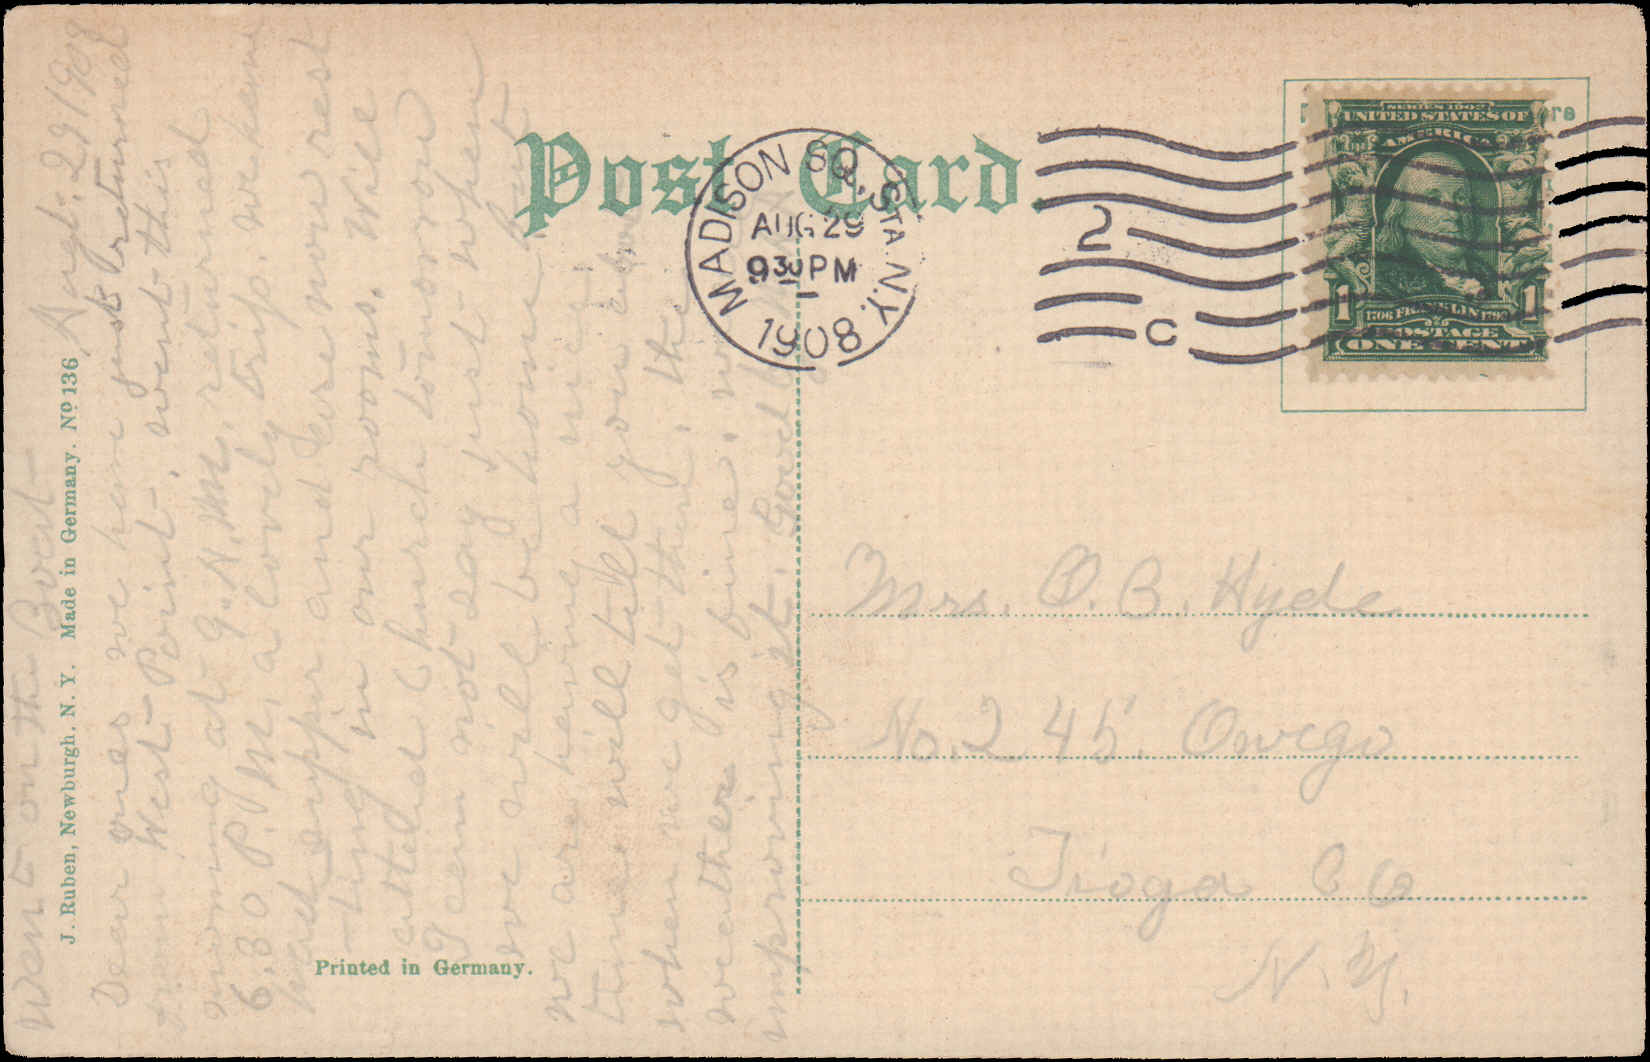 Post Card.
MADISON SQ. STA. N.Y.
AUG 29
9 30 PM
1908
2
C
SERIES 1902
UNITED STATES OF
AMERICA
1706 FRANKLIN 1790
POSTAGE
1 1
ONE CENT
ere
Mrs. O. B. Hyde
No. 245. Owego
Tioga Co
N. Y.
J. Ruben, Newburgh, N. Y. Made in Germany. No 136
Printed in Germany.
Went on the Boat
Augt. 29 1908
Dear ones we have just returned
from West Point. went this
morning at 9. A. M. returned
6.30 P. M. a lovely trip. we have
had supper and are now rest
ting in our rooms. Will
attend Church tomorrow
I can not say just when
we will be home but
we are having a nice
time will tell you all
when we get there. the
weather is fine.
improving it. Good